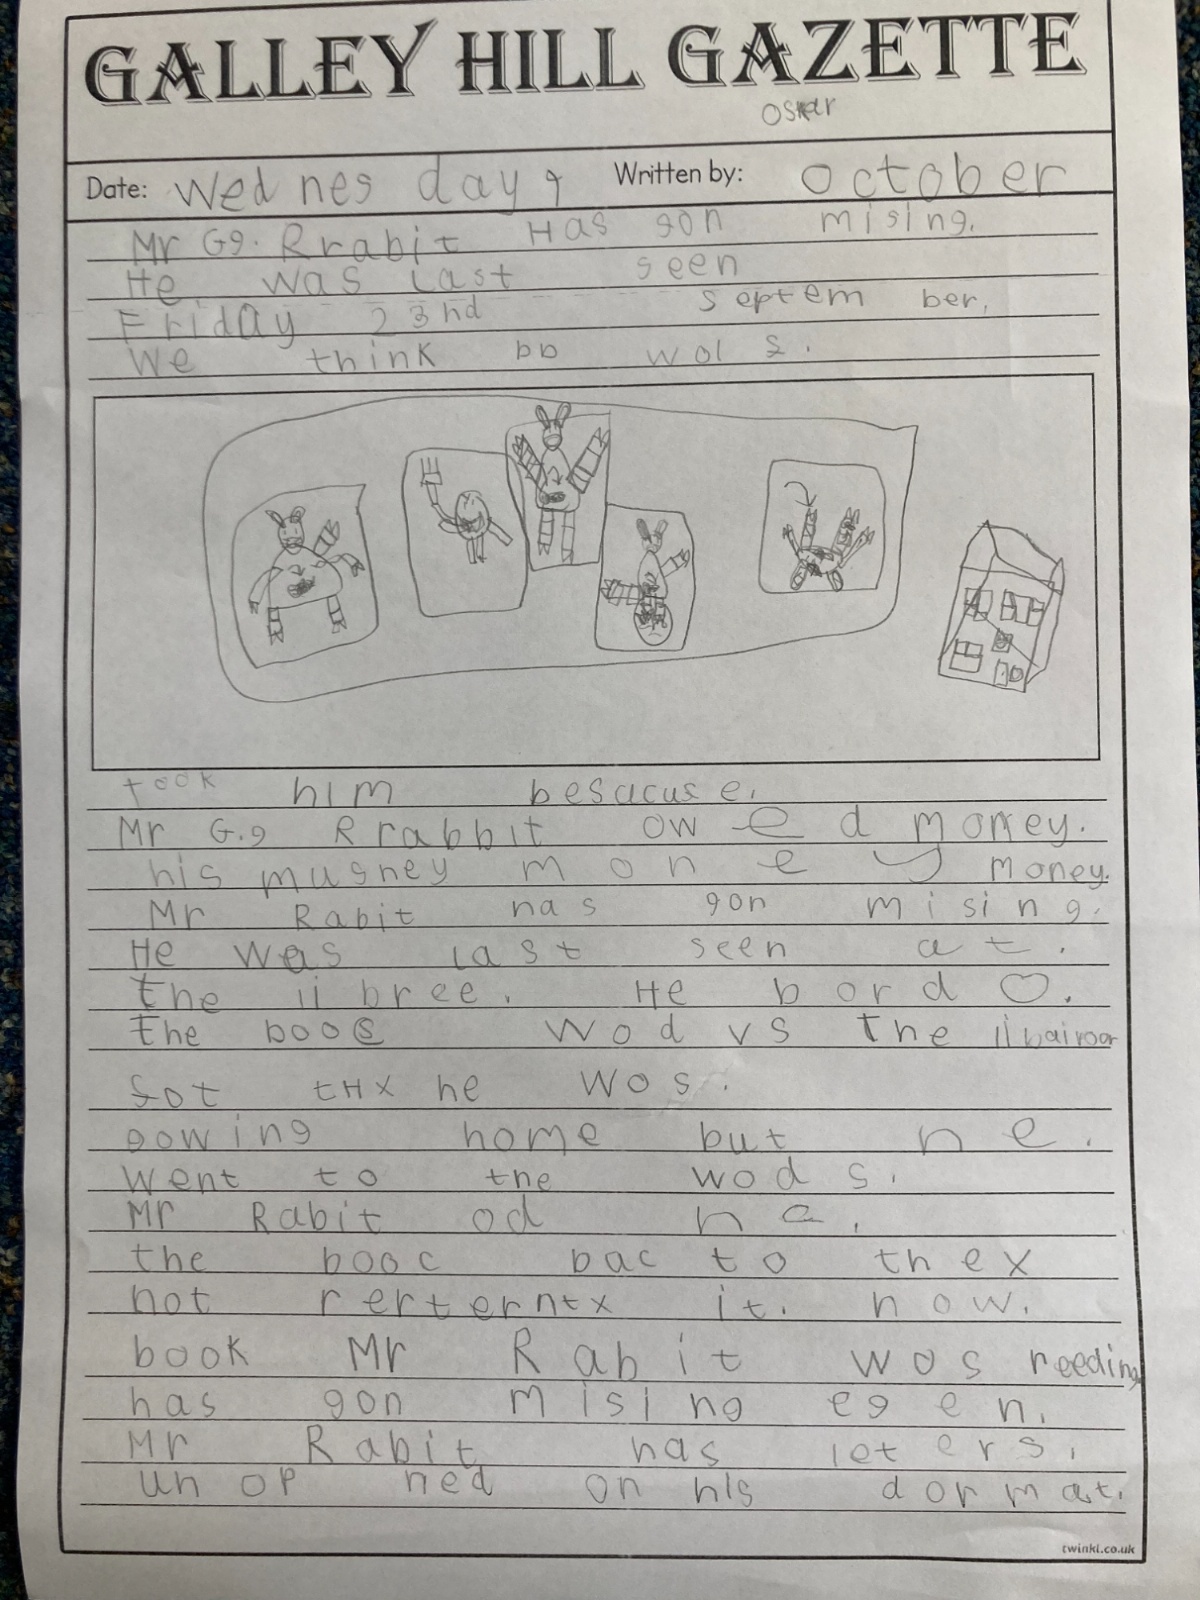 GALLEY HILL GAZETTE
Oskar
Date: Wed nes day 9 Written by: october
Mr Gg. Rrabit Has gon mising.
He was Last seen
Friday 23nd septem ber.
We think bb wol s.
took him besacuse.
Mr G.g Rrabbit ow e d money.
his musney m o n e y money.
Mr Rabit has gon m i s i n g.
He was last seen a t.
the li bree. He b o r d
the boos wod vs the
got tHx he wos.
gowing home but h e.
went to the wod s.
Mr Rabit od h a.
the booc bac to thex
not rerterntx it. now.
book Mr Rabit wos reeding
has gon mising eg e n.
Mr Rabit has let e r s.
un op ned on his dor mat.
twinkl.co.uk